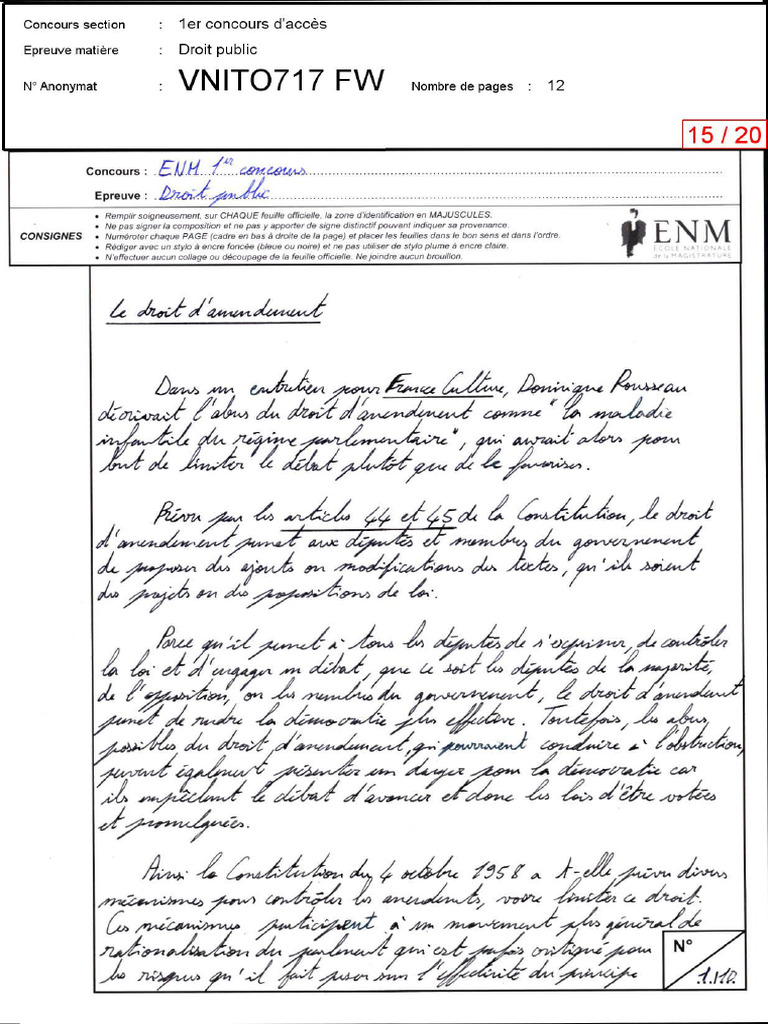 Concours section : 1er concours d'accès
Epreuve matière : Droit public
N° Anonymat : VNITO717 FW Nombre de pages : 12
15 / 20
Concours : ENM 1er concours
Epreuve : Droit public
CONSIGNES
• Remplir soigneusement, sur CHAQUE feuille officielle, la zone d'identification en MAJUSCULES.
• Ne pas signer la composition et ne pas y apporter de signe distinctif pouvant indiquer sa provenance.
• Numéroter chaque PAGE (cadre en bas à droite de la page) et placer les feuilles dans le bon sens et dans l'ordre.
• Rédiger avec un stylo à encre foncée (bleue ou noire) et ne pas utiliser de stylo plume à encre claire.
• N'effectuer aucun collage ou découpage de la feuille officielle. Ne joindre aucun brouillon.
ENM
ECOLE NATIONALE
de la MAGISTRATURE
Le droit d'amendement
Dans un entretien pour France Culture, Dominique Rousseau
décrivait l'abus du droit d'amendement comme "la maladie
infantile du régime parlementaire", qui aurait alors pour
but de limiter le débat plutôt que de le favoriser.
Prévu par les articles 44 et 45 de la Constitution, le droit
d'amendement permet aux députés et membres du gouvernement
de proposer des ajouts ou modifications des textes, qu'ils soient
des projets ou des propositions de loi.
Parce qu'il permet à tous les députés de s'exprimer, de contrôler
la loi et d'engager un débat, que ce soit les députés de la majorité,
de l'opposition, ou les membres du gouvernement, le droit d'amendement
permet de rendre la démocratie plus effective. Toutefois, les abus
possibles du droit d'amendement, qui pourraient conduire à l'obstruction,
peuvent également présenter un danger pour la démocratie car
ils empêchent le débat d'avancer et donc les lois d'être votées
et promulguées.
Ainsi la Constitution du 4 octobre 1958 a t-elle prévu divers
mécanismes pour contrôler les amendements, voire limiter ce droit.
Ces mécanismes participent à un mouvement plus général de
rationalisation du parlement qui est parfois critiqué pour
les risques qu'il fait peser sur l'effectivité du principe
N°
1/10